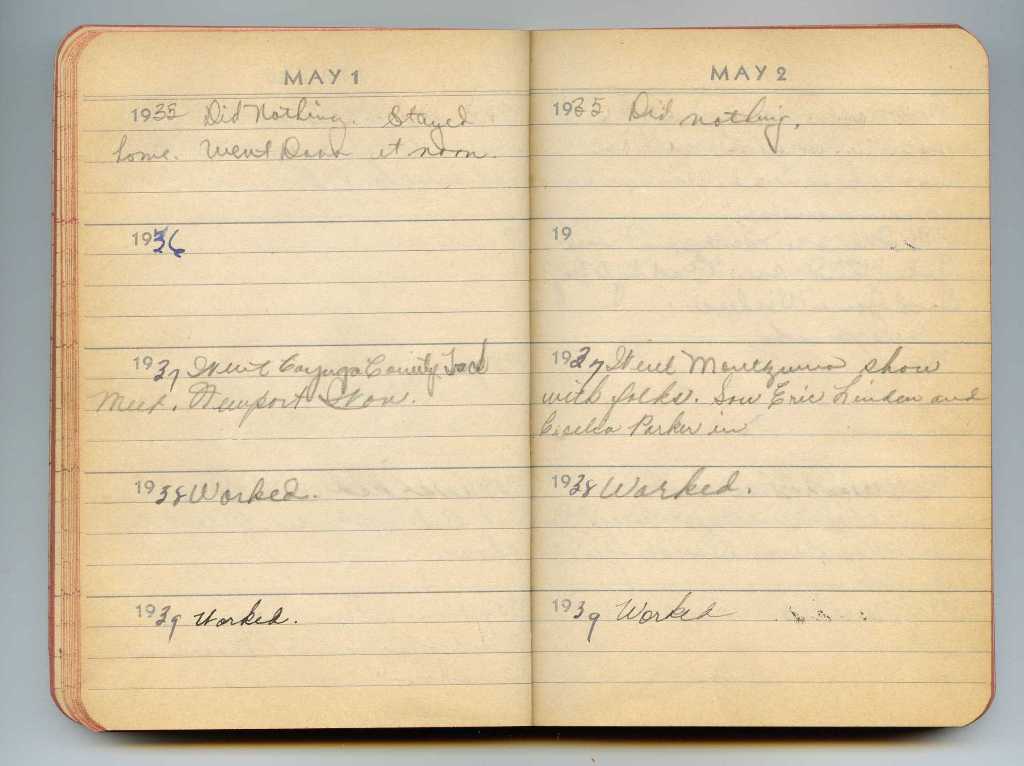 MAY 1
1935 Did Nothing. Stayed
home. Went Down at noon.
1936
1937 Went Cayuga County Track
Meet. Newport Won.
1938 Worked.
1939 Worked.
MAY 2
1935 Did nothing.
19
1937 Went Montezuma show
with folks. Saw Eric Linden and
Cecelia Parker in
1938 Worked.
1939 Worked